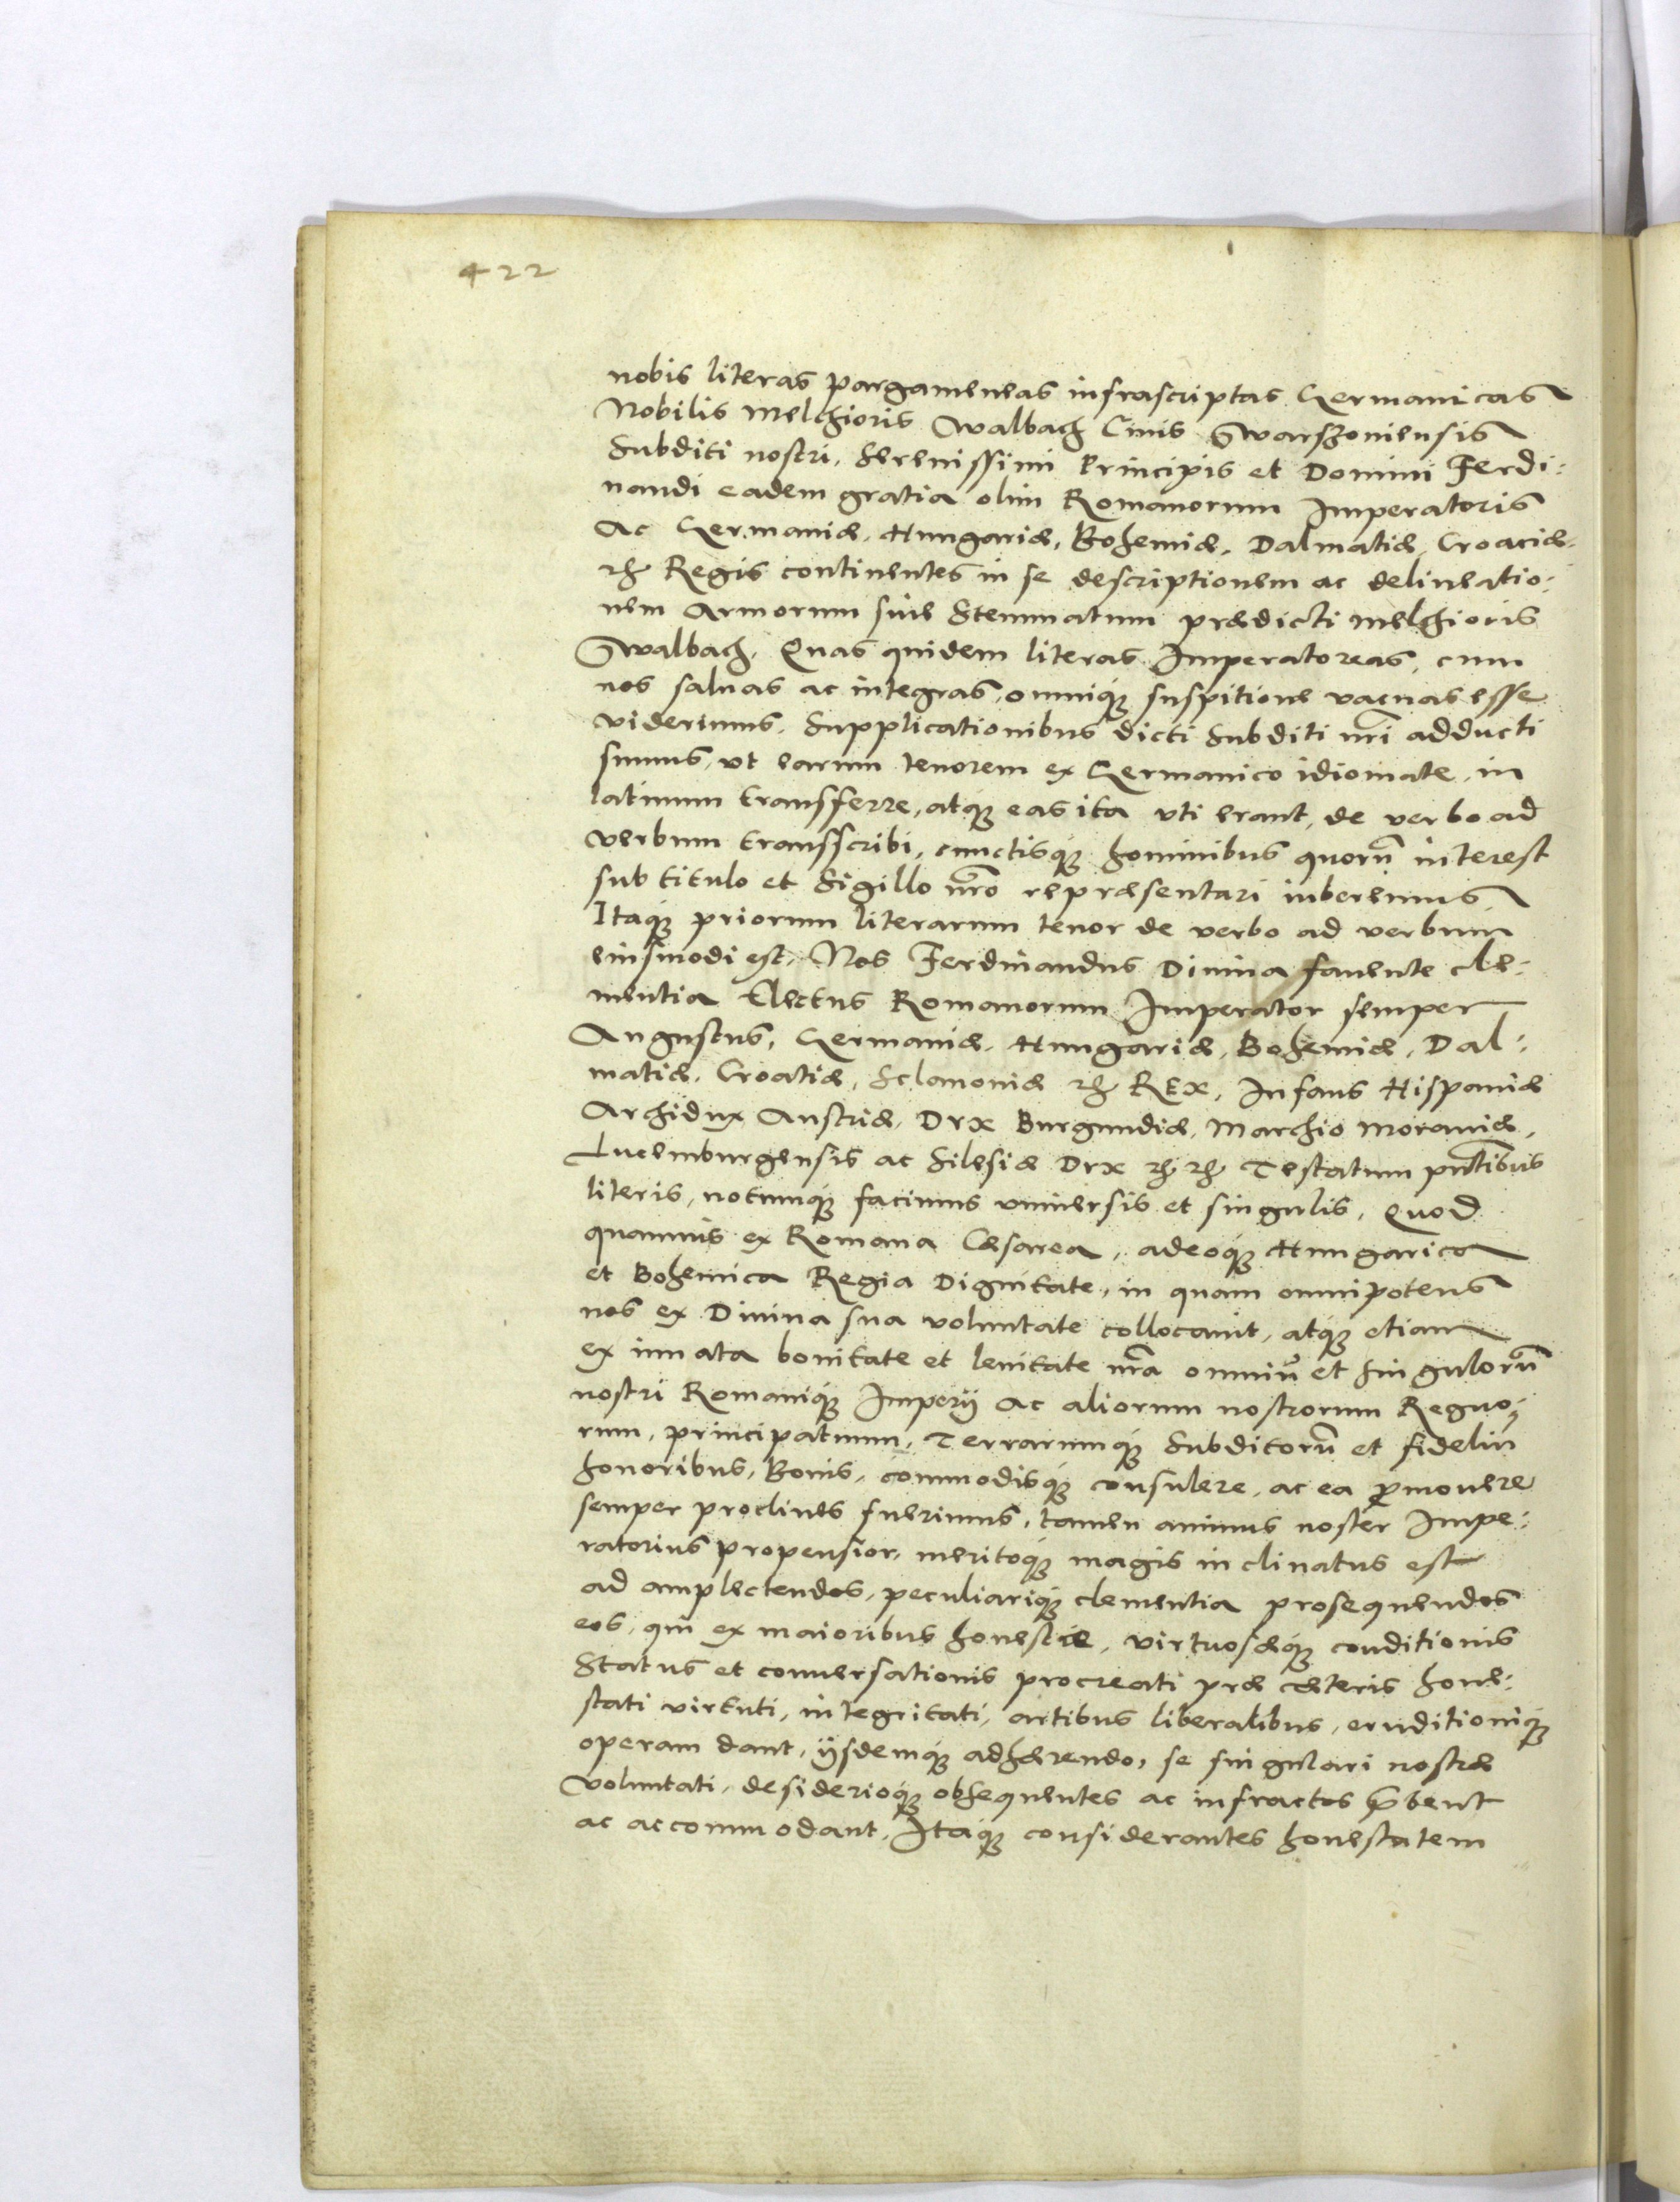 422
nobis literas pargameneas infrascriptas Germanicas
Nobilis Melchioris Walbach Ciuis Warszouiensis
Subditi nostri, Serenissimi Principis et Domini Ferdi:
nandi eadem gratia olim Romanorum Imperatoris
Ac Germaniæ, Hungariæ, Bohemiæ, Dalmatiæ, Croaciæ
etc Regis continentes in se descriptionem ac delineatio:
nem Armorum siue Stemmatum prædicti Melchioris
Walbach. Quas quidem literas Imperatoreas, cum
nos saluas ac integras, omniq́ue suspitione vacuas esse
viderimus, Supplicationibus dicti Subditi nr̃i adducti
sumus, vt earum tenorem ex Germanico idiomate, in
latinum transferre, atq́ue eas ita vti erant, de verbo ad
verbum transscribi, cunctisq́ue hominibus quorũ interest
sub titulo et Sigillo nr̃o repræsentari iuberemus.
Itaq́ue priorum literarum tenor de verbo ad verbum
eiusmodi est. Nos Ferdinandus Diuina fauente cle:
mentia Electus Romanorum Imperator semper
Augustus, Germaniæ, Hungariæ, Bohemiæ, Dal:
matiæ, Croatiæ, Sclauoniæ etc REX, Infans Hispaniæ
Archidux Austriæ, Dux Burgundiæ, Marchio Morauiæ,
Lucemburgensis ac Silesiæ Dux etc etc Testatum pñtibus
literis, notumq́ue facimus vniuersis et singulis, Quod
quamuis ex Romana Cæsarea, adeoq́ue Hungarica
et Bohemica Regia Dignitate, in quam omnipotens
nos ex Diuina sua voluntate collocauit, atq́ue etiam
ex innata bonitate et lenitate nr̃a omniũ et singulorũ
nostri Romaniq́ue Imperij ac aliorum nostrorum Regno:
rum, principatuum, Terrarumq́ue Subditorũ et fideliũ
honoribus, Bonis, commodisq́ue consulere, ac ea p̃mouere
semper procliues fuerimus, tamen animus noster Impe:
ratorius propensior, meritoq́ue magis inclinatus est
ad amplectendos, peculiariq́ue clementia prosequendos
eos, qui ex maioribus honestæ, virtuosæq́ue conditionis
Status et conuersationis procreati præ cæteris hone:
stati virtuti, integritati, artibus liberalibus, eruditioniq́ue
operam dant, ijsdemq́ue adhærendo, se singulari nostræ
voluntati, desiderioq́ue obsequentes ac infractos p̃bent
ac accommodant. Itaq́ue considerantes honestatem